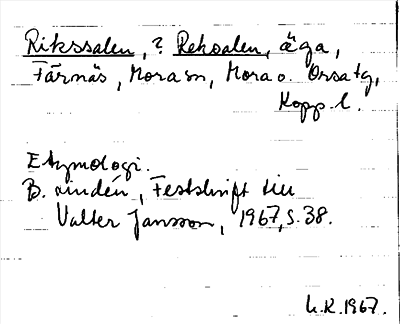 Rikssalen, ? Rekoalen, äga,
Färnäs, Mora sn, Mora o. Orsa tg,
Kopp. l.
Etymologi.
B. Lindén, Festskrift till
Valter Jansson, 1967, s. 38.
1967.